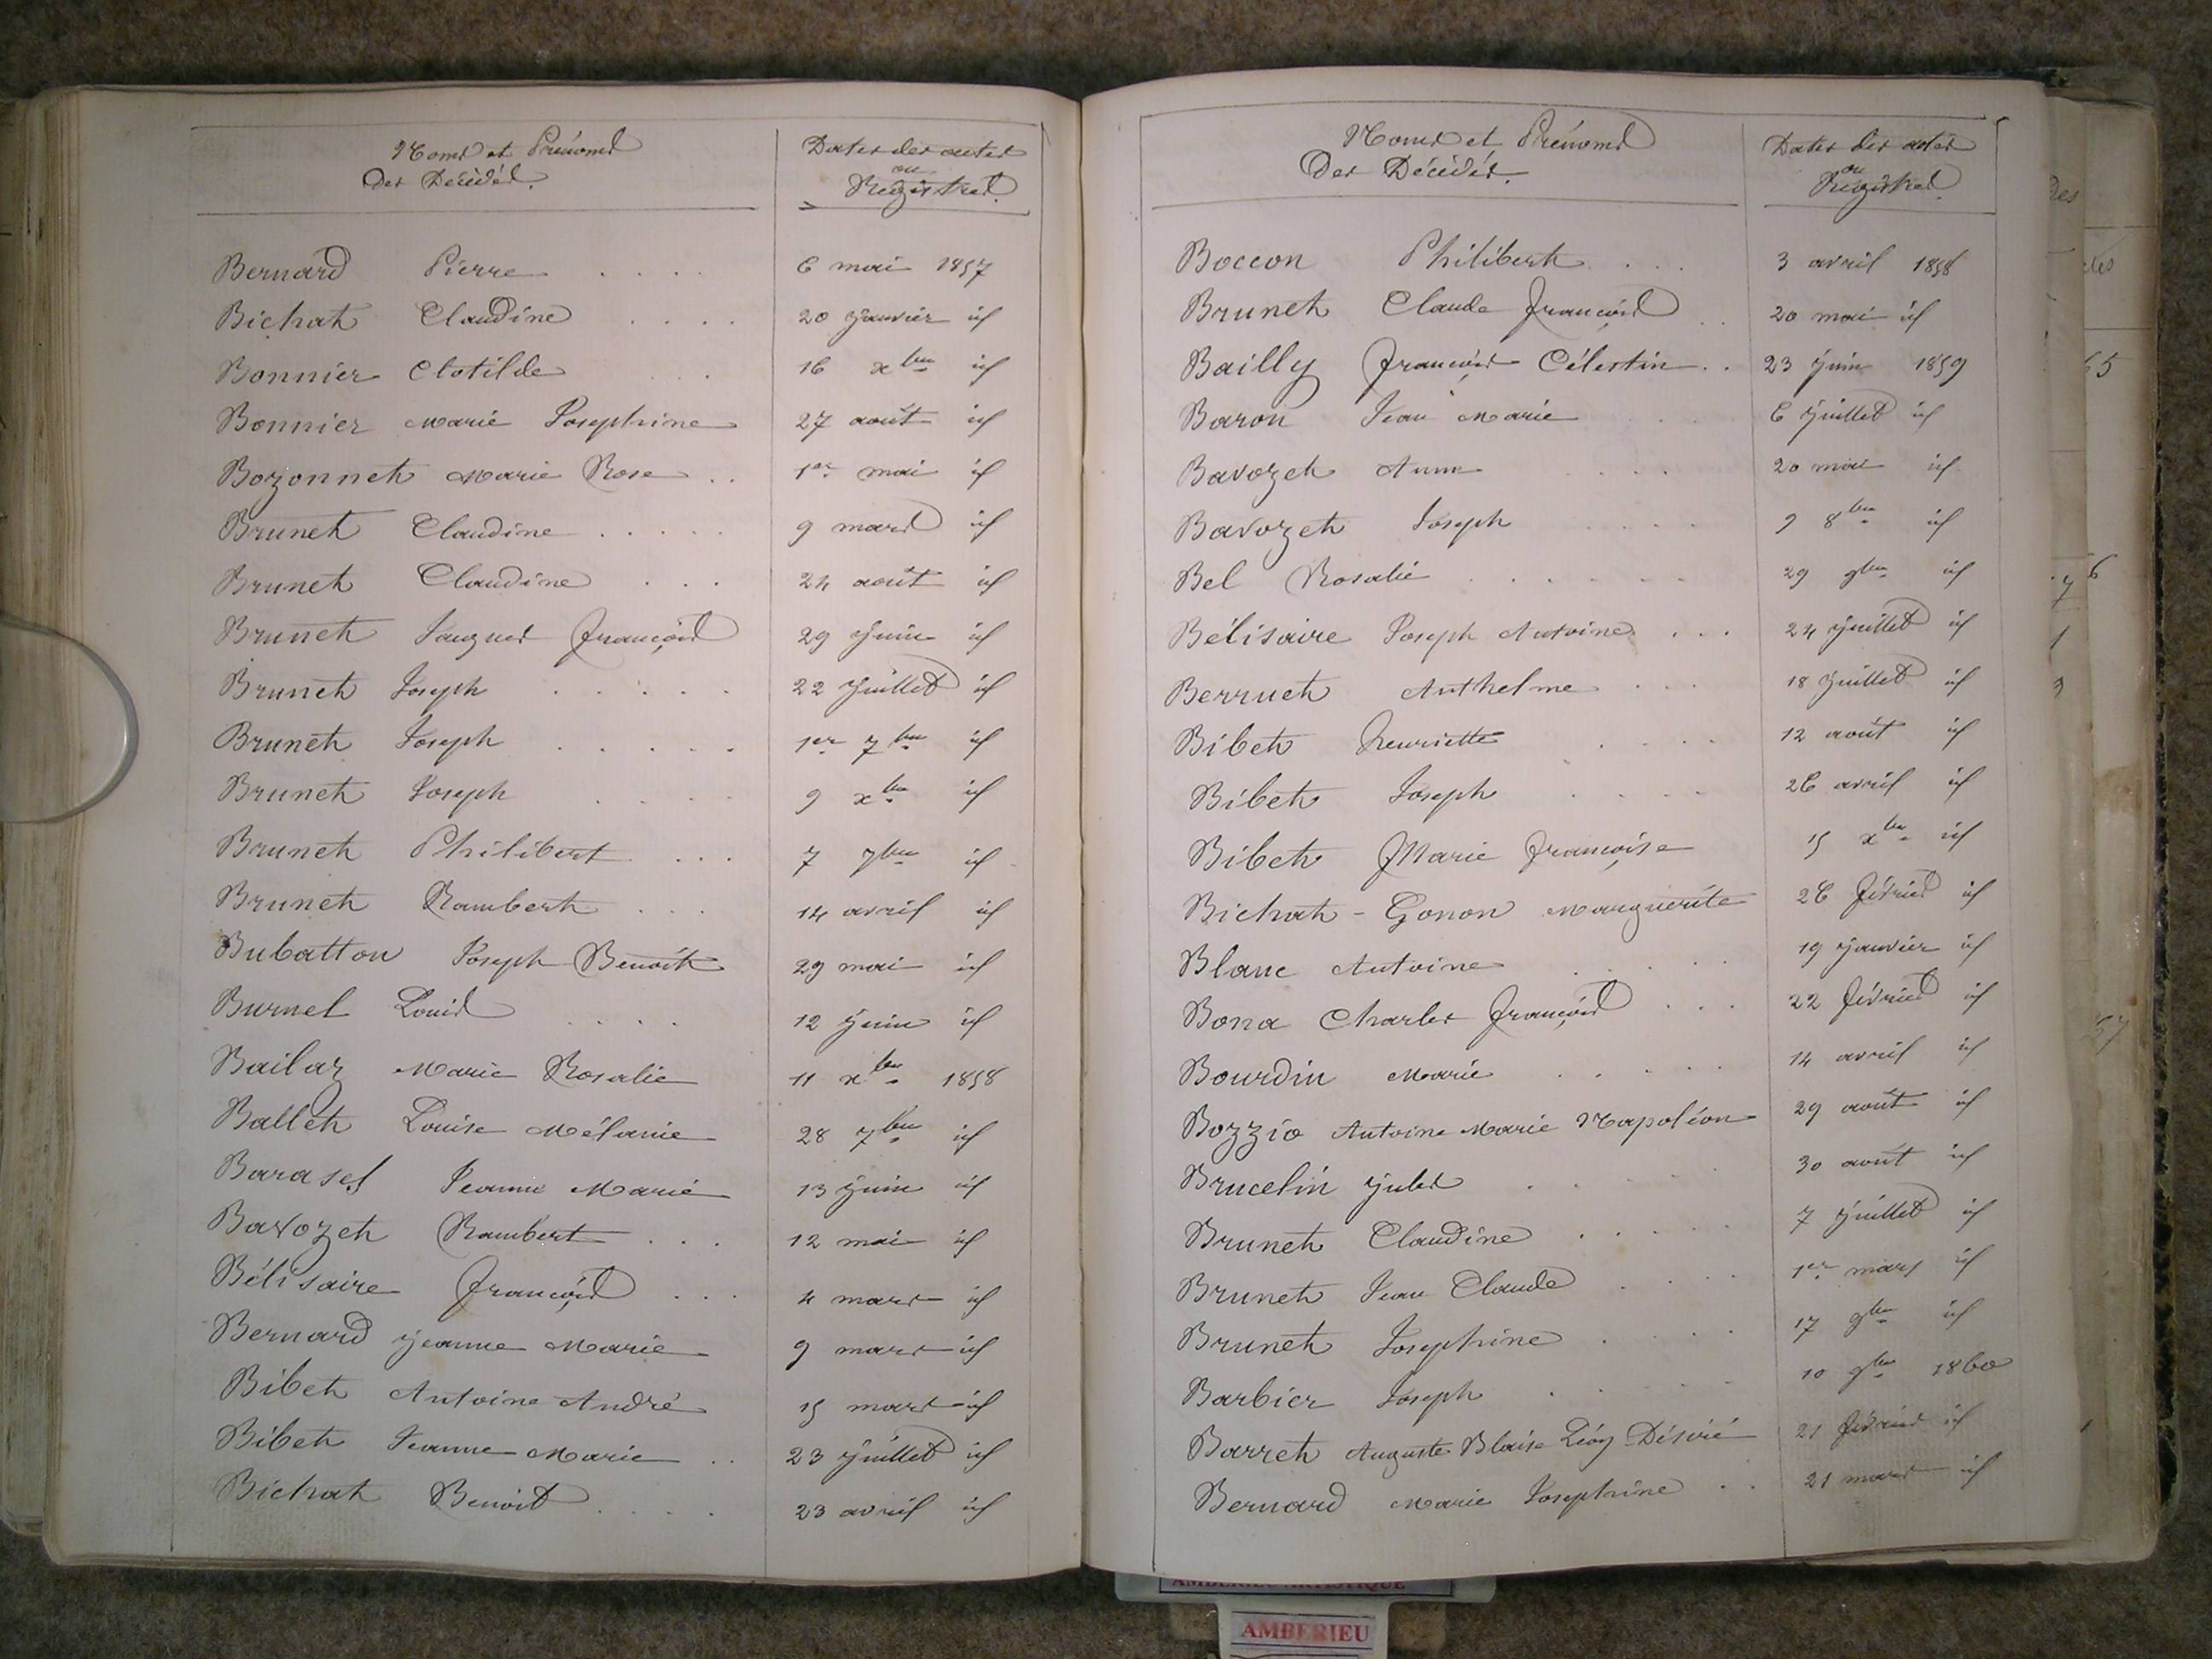 Noms et Prénoms
Des Décédés.
Dates des actes
ou
Registres.
Bernard Pierre . . . . 6 mai 1857
Bichat Claudine . . . . 20 Janvier id
Bonnier Clotilde . . . 16 xbre id
Bonnier Marie Josephine 27 août id
Bozonnet Marie Rose . . 1er mai id
Brunet Claudine . . . . . 9 mars id
Brunet Claudine . . . 24 août id
Brunet Jacques François 29 Juin id
Brunet Joseph . . . . . 22 Juillet id
Brunet Joseph . . . . . 1er 7bre id
Brunet Joseph . . . . 9 xbre id
Brunet Philibert . . . 7 7bre id
Brunet Rambert . . . 14 avril id
Bubatton Joseph Benoit 29 mai id
Burnel Louis . . . . 12 Juin id
Bailaz Marie Rosalie 11 xbre 1858
Ballet Louise Mélanie 28 7bre id
Barasel Jeanne Marie 13 Juin id
Bavozet Rambert . . . 12 mai id
Bélisaire François . . . 4 mars id
Bernard Jeanne Marie 9 mars id
Bibet Antoine André 15 mars id
Bibet Jeanne Marie . . 23 Juillet id
Bichat Benoit . . . . 23 avril id
Noms et Prénoms
Des Décédés.
Dates des actes
ou
Registres.
Boccon Philibert . . . 3 avril 1858
Brunet Claude François . . 20 mai id
Bailly François Célestin . . 23 Juin 1859
Baron Jean Marie . . 6 Juillet id
Bavozet Anne . . . . 20 mai id
Bavozet Joseph . . . . 9 8bre id
Bel Rosalie . . . . . . 29 9bre id
Bélisaire Joseph Antoine . . . 24 Juillet id
Berruet Anthelme . . . 18 Juillet id
Bibet henriette . . . . 12 août id
Bibet Joseph . . . . 26 avril id
Bibet Marie Françoise 15 xbre id
Bichat - Gonon Marguerite 26 Février id
Blanc Antoine . . . . . 19 Janvier id
Bona Charles François . . . 22 Février id
Bourdin Marie . . . . . 14 avril id
Bozzio Antoine Marie Napoléon 29 août id
Brucelin Jules . . . . 30 août id
Brunet Claudine . . . . . 7 Juillet id
Brunet Jean Claude . . . . 1er mars id
Brunet Josephine . . . . 17 9bre id
Barbier Joseph . . . . . 10 9bre 1860
Barret Auguste Blaise Léon Désiré 21 Février id
Bernard Marie Josephine . . 21 mars id
AMBERIEU ARTISTIQUE
AMBERIEU